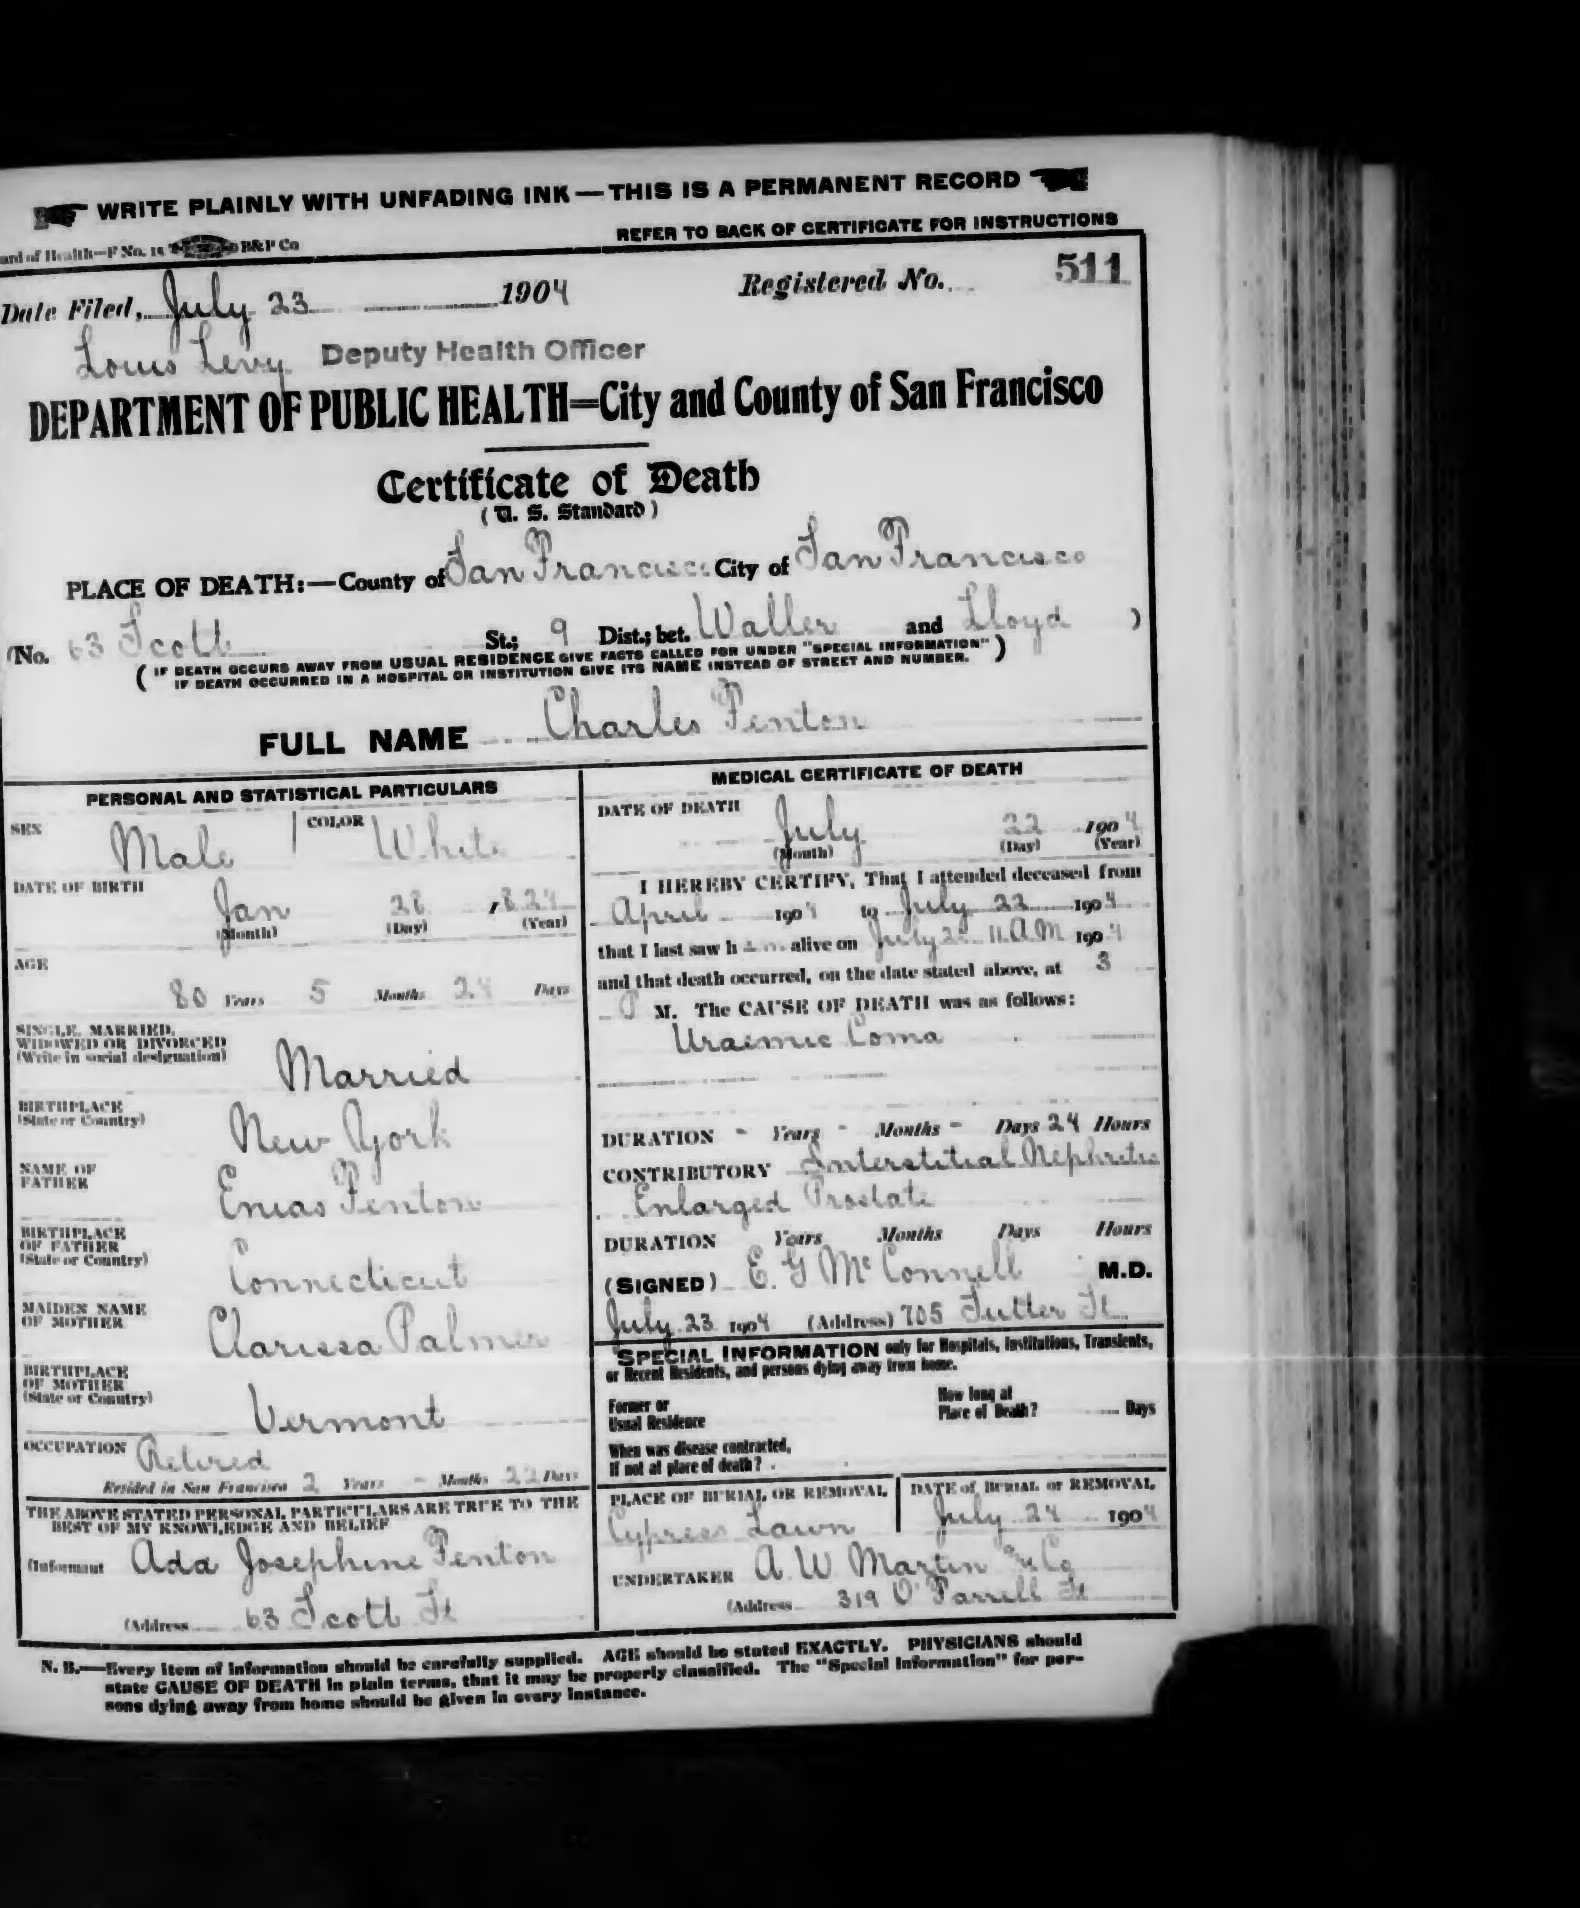 WRITE PLAINLY WITH UNFADING INK — THIS IS A PERMANENT RECORD
ard of Health—F No. 15 B&P Co
REFER TO BACK OF CERTIFICATE FOR INSTRUCTIONS
Date Filed, July 23 1904 Registered No. 511
Louis Levy Deputy Health Officer
DEPARTMENT OF PUBLIC HEALTH=City and County of San Francisco
Certificate of Death
(U. S. Standard)
PLACE OF DEATH:—County of San Francisco City of San Francisco
(No. 63 Scott St.; 9 Dist.; bet. Waller and Lloyd )
( IF DEATH OCCURS AWAY FROM USUAL RESIDENCE GIVE FACTS CALLED FOR UNDER "SPECIAL INFORMATION" )
IF DEATH OCCURRED IN A HOSPITAL OR INSTITUTION GIVE ITS NAME INSTEAD OF STREET AND NUMBER.
FULL NAME Charles Fenton
PERSONAL AND STATISTICAL PARTICULARS
SEX Male COLOR White
DATE OF BIRTH
Jan 28 , 824
(Month) (Day) (Year)
AGE
80 Years 5 Months 24 Days
SINGLE, MARRIED,
WIDOWED OR DIVORCED
(Write in social designation) Married
BIRTHPLACE
(State or Country) New York
NAME OF
FATHER Enias Fenton
BIRTHPLACE
OF FATHER
(State or Country) Connecticut
MAIDEN NAME
OF MOTHER Clarissa Palmer
BIRTHPLACE
OF MOTHER
(State or Country) Vermont
OCCUPATION Retired
Resided in San Francisco 2 Years - Months 22 Days
THE ABOVE STATED PERSONAL PARTICULARS ARE TRUE TO THE
BEST OF MY KNOWLEDGE AND BELIEF
(Informant Ada Josephine Fenton
(Address 63 Scott St
MEDICAL CERTIFICATE OF DEATH
DATE OF DEATH
July 22 1904
(Month) (Day) (Year)
I HEREBY CERTIFY, That I attended deceased from
April 1904 to July 22 1904
that I last saw h im alive on July 11 A.M 1904
and that death occurred, on the date stated above, at 3
P M. The CAUSE OF DEATH was as follows:
Uraemic Coma
DURATION - Years - Months - Days 24 Hours
CONTRIBUTORY Interstitial Nephritis
Enlarged Prostate
DURATION Years Months Days Hours
(SIGNED) E. G McConnell M.D.
July 23 1904 (Address) 705 Sutter St.
SPECIAL INFORMATION only for Hospitals, Institutions, Transients,
or Recent Residents, and persons dying away from home.
Former or
Usual Residence
How long at
Place of Death? Days
When was disease contracted,
If not at place of death?
PLACE OF BURIAL OR REMOVAL
Cypress Lawn
DATE of BURIAL or REMOVAL
July 24 1904
UNDERTAKER A. W Martin & Co
(Address 319 O'Farrell St
N. B.—Every item of information should be carefully supplied. AGE should be stated EXACTLY. PHYSICIANS should
state CAUSE OF DEATH in plain terms, that it may be properly classified. The "Special Information" for per-
sons dying away from home should be given in every instance.